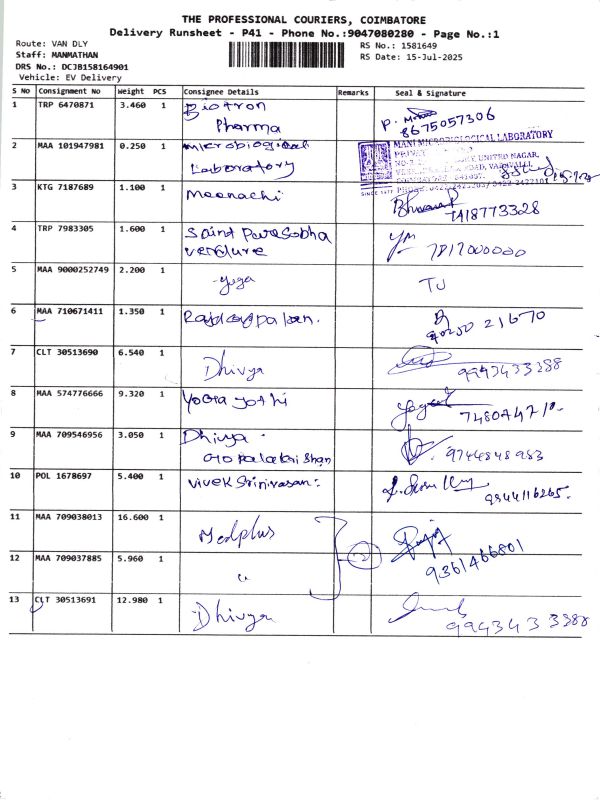 THE PROFESSIONAL COURIERS, COIMBATORE
Delivery Runsheet - P41 - Phone No.:9047080280 - Page No.:1
Route: VAN DLY
Staff: MANMATHAN
DRS No.: DCJB158164901
Vehicle: EV Delivery
RS No.: 1581649
RS Date: 15-Jul-2025
S No Consignment No Weight PCS Consignee Details Remarks Seal & Signature
1 TRP 6470871 3.460 1 Biotron
Pharma
8675057306
2 MAA 101947981 0.250 1 microbiological
Laboratory
MANI MICROBIOLOGICAL LABORATORY
UNITED NAGAR,
3 KTG 7187689 1.100 1 Meenachi
7418773328
4 TRP 7983305 1.600 1 Saint
verdure
5 MAA 9000252749 2.200 1 yoga
6 MAA 710671411 1.350 1
21670
7 CLT 30513690 6.540 1 Dhivya
9943433388
8 MAA 574776666 9.320 1 yoga jothi
9 MAA 709546956 3.050 1 Dhivya
Gopalakrishnan
9744848983
10 POL 1678697 5.400 1 Vivek Srinivasan
9944116265.
11 MAA 709038013 16.600 1 Medplus
12 MAA 709037885 5.960 1 "
2
9361466801
13 CLT 30513691 12.980 1 Dhivya
9943433388